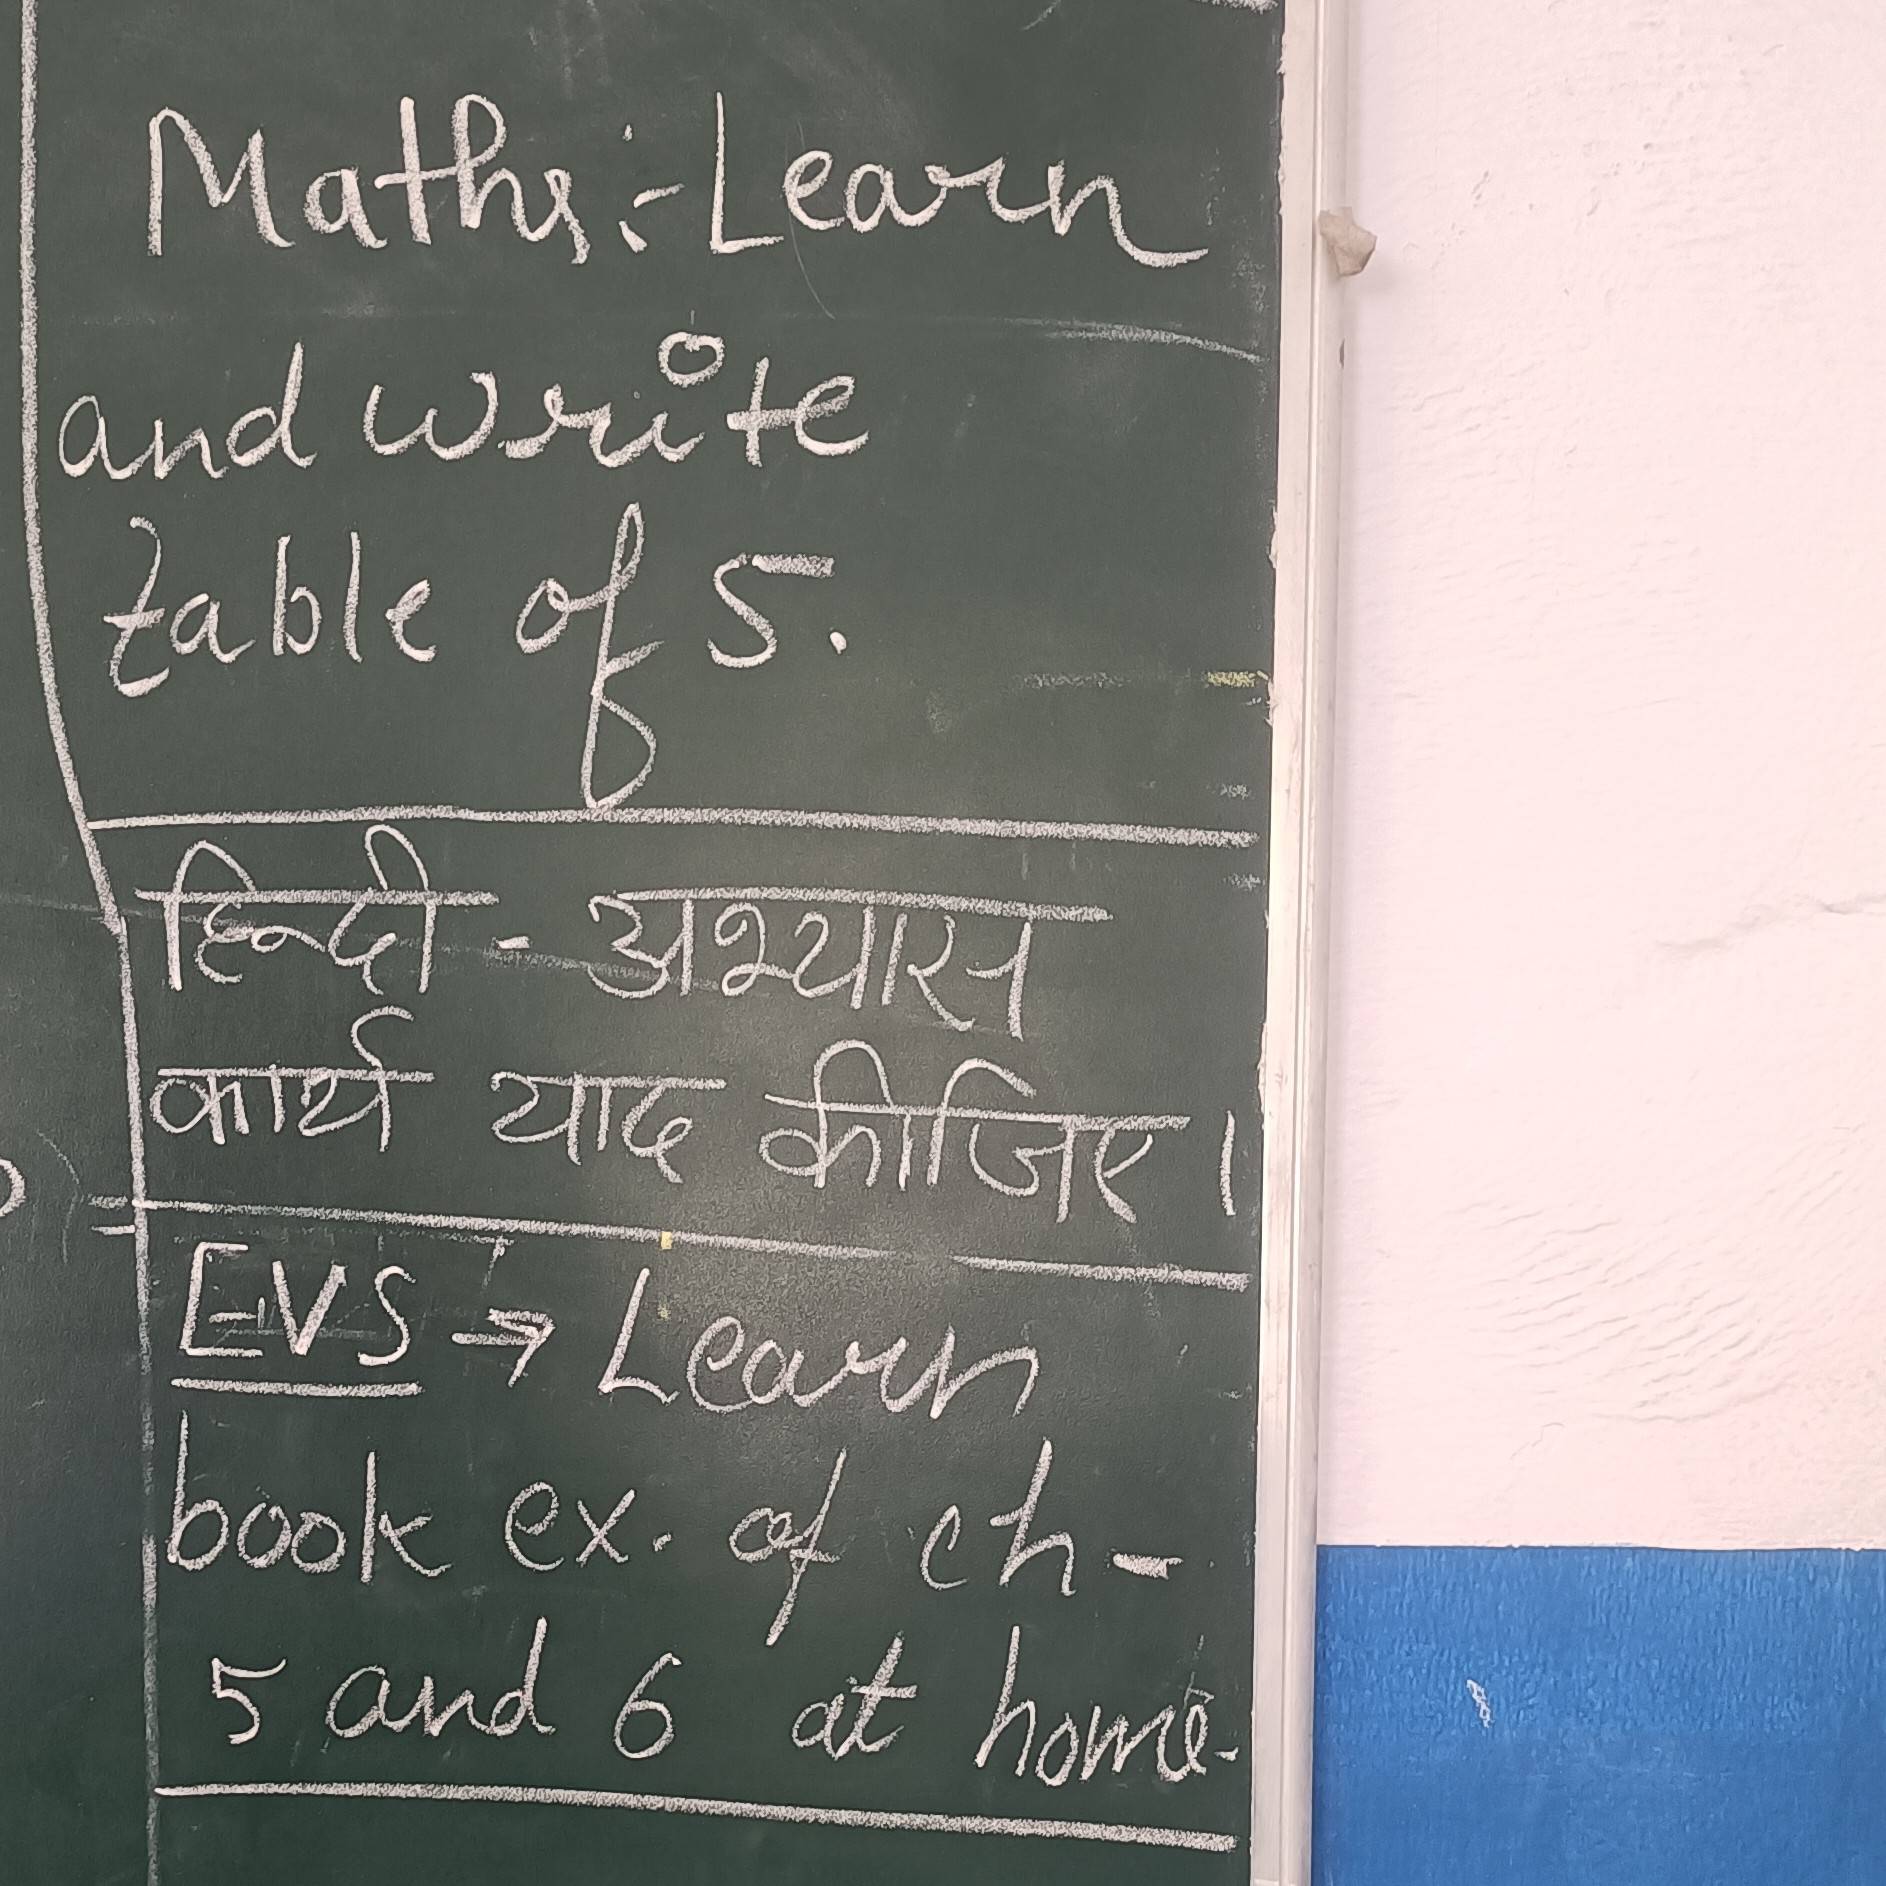 Maths:- Learn
and write
table of 5.
हिन्दी - अभ्यास
कार्य याद कीजिए।
EVS → Learn
book ex. of ch-
5 and 6 at home.